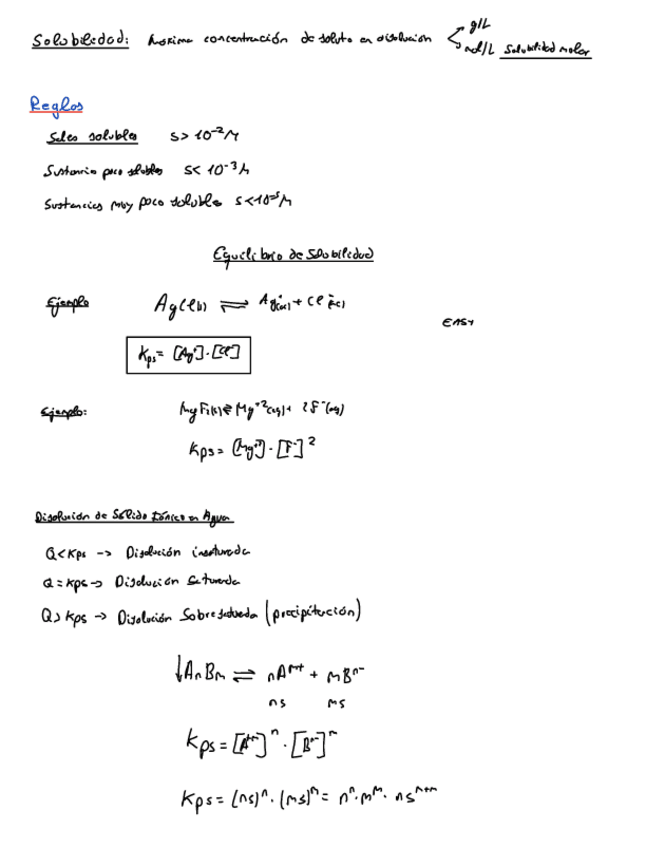 Solubilidad: Máxima concentración de soluto en disolución g/L
mol/L Solubilidad molar
Reglas
Sales solubles s> 10⁻² M
Sustancia poco solubles s< 10⁻³ M
Sustancias muy poco solubles s<10⁻⁵ M
Equilibrio de solubilidad
Ejemplo AgCl(s) ⇌ Ag⁺(ac) + Cl⁻(ac)
EASY
Kps = [Ag⁺]·[Cl⁻]
Ejemplo: MgF₂(s) ⇌ Mg⁺²(aq) + 2F⁻(aq)
Kps = [Mg⁺²]·[F⁻]²
Disolución de Sólido Iónico en Agua
Q<Kps -> Disolución insaturada
Q=Kps -> Disolución Saturada
Q>Kps -> Disolución Sobresaturada (precipitación)
↓AnBm ⇌ nAᵐ⁺ + mBⁿ⁻
ns ms
Kps = [Aᵐ⁺]ⁿ · [Bⁿ⁻]ᵐ
Kps = (ns)ⁿ · (ms)ᵐ = nⁿ·mᵐ· nsⁿ⁺ᵐ